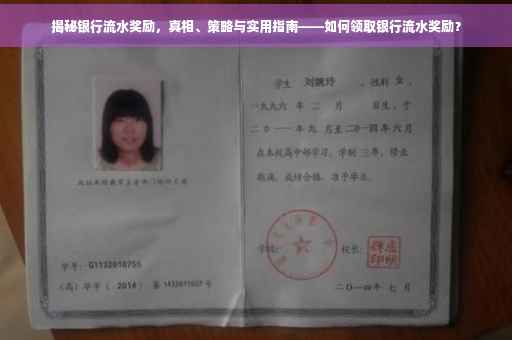 揭秘银行流水奖励，真相、策略与实用指南——如何领取银行流水奖励？
学生 刘婉玲 ，性别 女 ，
一九九六 年 二 月 日生，于
二〇一一 年 九 月至 二〇一四 年 六 月
在本校高中部学习，学制 三年，修业
期满，成绩合格，准予毕业。
学校： 校长：
学号： G1132010755
（高）毕字（ 2014 ）第 1432011607 号
二〇一四年 七 月